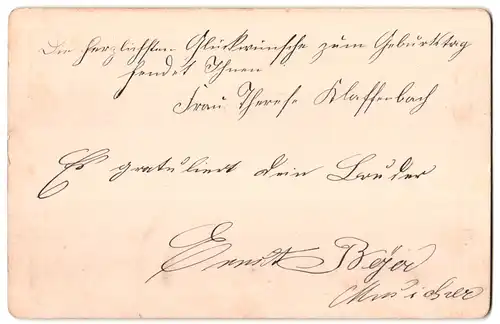 Die herzlichsten Glückwünsche zum Geburtstag
sendet Ihnen
Frau Therese Klaffenbach
Es gratuliert dein Bruder
Ernst Beyer
Musicker